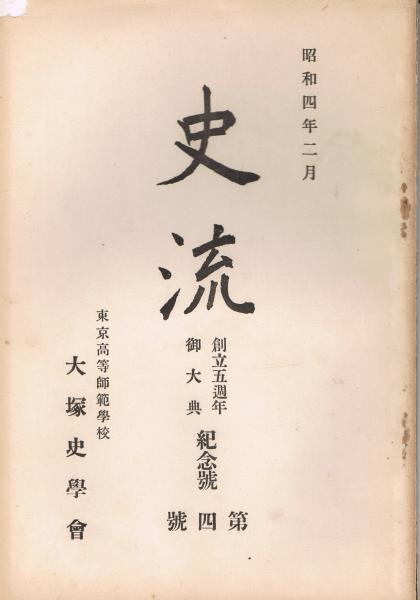 昭和四年二月
史流
創立五週年
御大典
紀念號
第四號
東京高等師範學校
大塚史學會